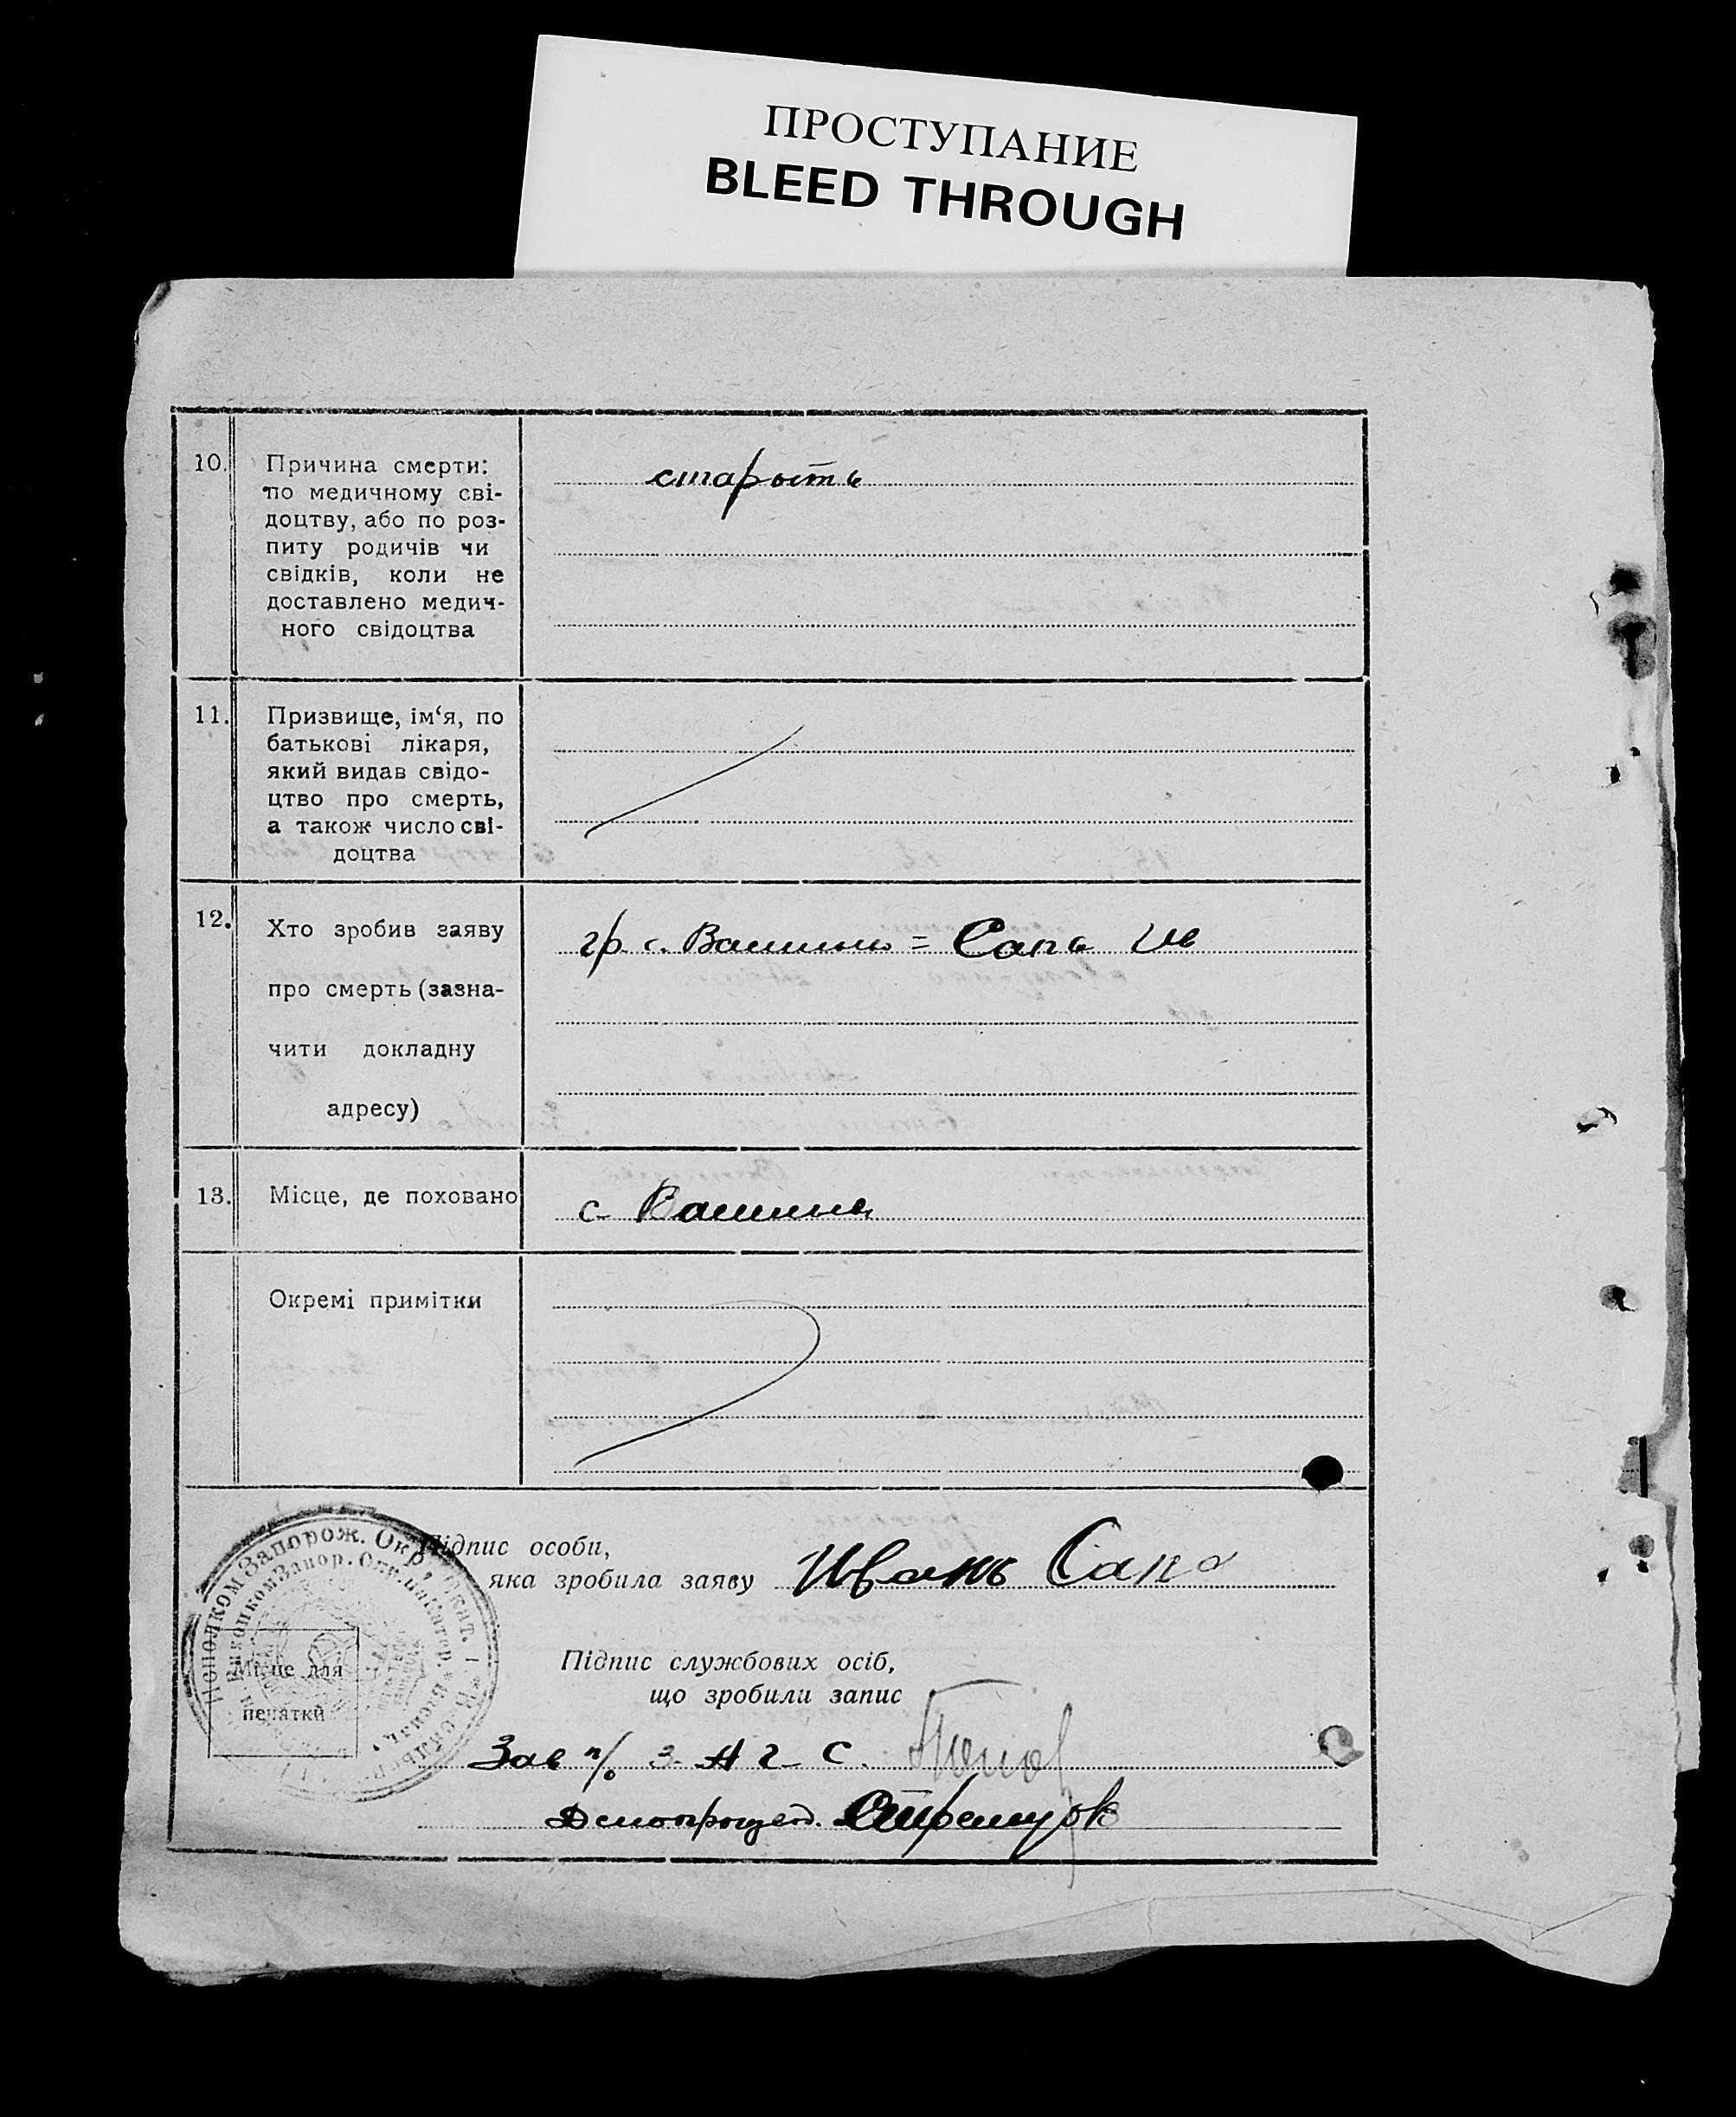 ПРОСТУПАНИЕ
BLEED THROUGH
10. Причина смерти:
по медичному сві-
доцтву, або по роз-
питу родичів чи
свідків, коли не
доставлено медич-
ного свідоцтва
старость
11. Призвище, ім‘я, по
батькові лікаря,
який видав свідо-
цтво про смерть,
а також число сві-
доцтва
12. Хто зробив заяву
про смерть (зазна-
чити докладну
адресу)
гр. с. = Сапа Ив
13. Місце, де поховано
с.
Окремі примітки
Підпис особи,
яка зробила заяву Иванъ Сапа
Підпис службових осіб,
що зробили запис
Місце для
печатки
Зав п/о З А Г С. Попов
Запорож. Окр.